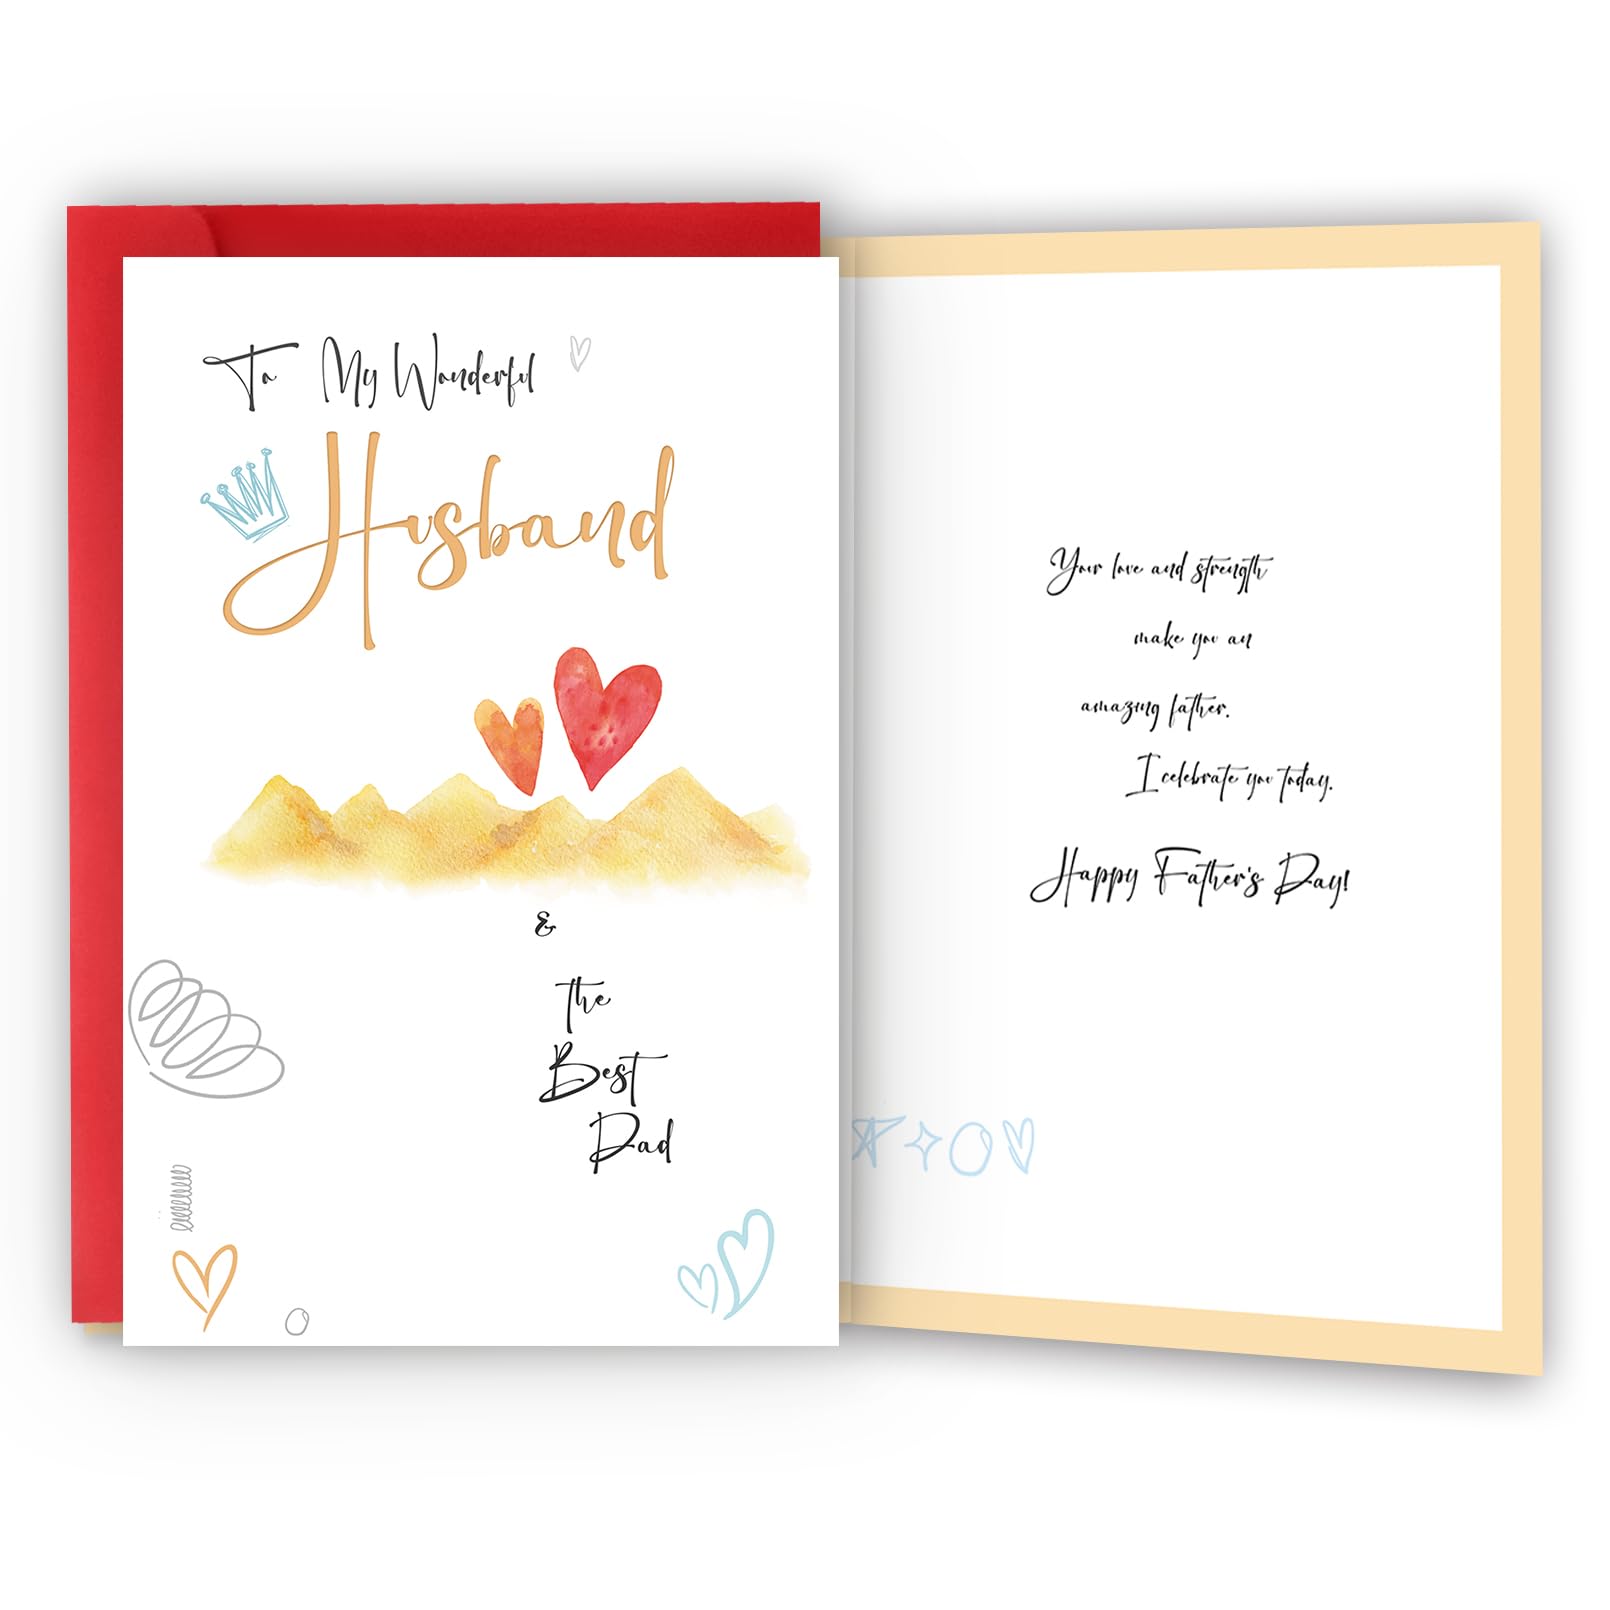 To My Wonderful
Husband
&
the
Best
Dad
Your love and strength
make you an
amazing father.
I celebrate you today.
Happy Father's Day!